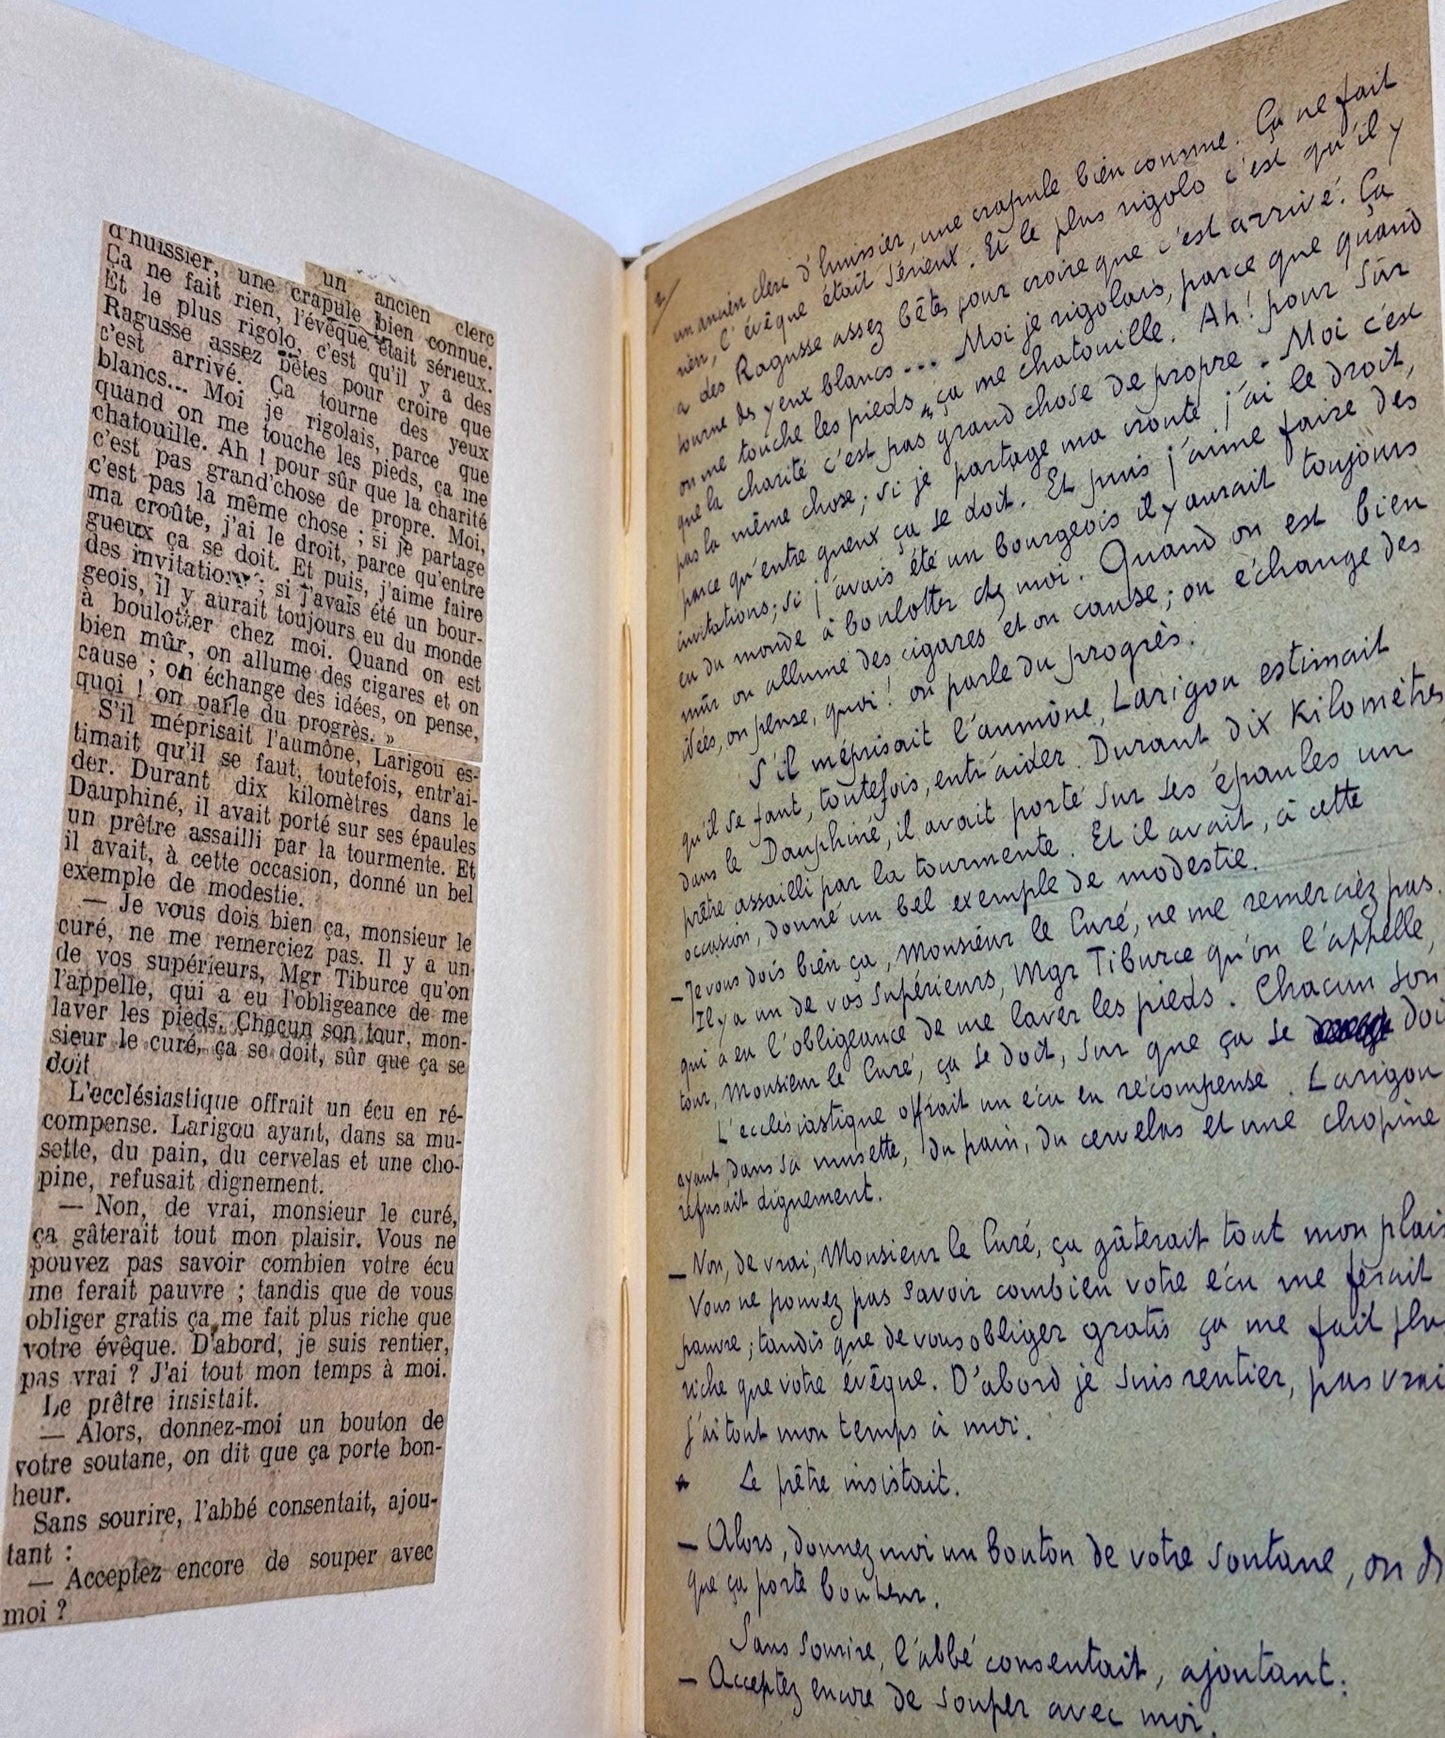 un ancien clerc
d'huissier, une crapule bien connue.
Ça ne fait rien, l'évêque était sérieux.
Et le plus rigolo, c'est qu'il y a des
Ragusse assez bêtes pour croire que
c'est arrivé. Ça tourne des yeux
blancs... Moi je rigolais, parce que
quand on me touche les pieds, ça me
chatouille. Ah ! pour sûr que la charité
c'est pas grand'chose de propre. Moi,
c'est pas la même chose ; si je partage
ma croûte, j'ai le droit, parce qu'entre
gueux ça se doit. Et puis, j'aime faire
des invitations ; si j'avais été un bour-
geois, il y aurait toujours eu du monde
à boulotter chez moi. Quand on est
bien mûr, on allume des cigares et on
cause ; on échange des idées, on pense,
quoi ! on parle du progrès. »
S'il méprisait l'aumône, Larigou es-
timait qu'il se faut, toutefois, entr'ai-
der. Durant dix kilomètres dans le
Dauphiné, il avait porté sur ses épaules
un prêtre assailli par la tourmente. Et
il avait, à cette occasion, donné un bel
exemple de modestie.
— Je vous dois bien ça, monsieur le
curé, ne me remerciez pas. Il y a un
de vos supérieurs, Mgr Tiburce qu'on
l'appelle, qui a eu l'obligeance de me
laver les pieds. Chacun son tour, mon-
sieur le curé, ça se doit, sûr que ça se
doit
L'ecclésiastique offrait un écu en ré-
compense. Larigou ayant, dans sa mu-
sette, du pain, du cervelas et une cho-
pine, refusait dignement.
— Non, de vrai, monsieur le curé,
ça gâterait tout mon plaisir. Vous ne
pouvez pas savoir combien votre écu
me ferait pauvre ; tandis que de vous
obliger gratis ça me fait plus riche que
votre évêque. D'abord, je suis rentier,
pas vrai ? J'ai tout mon temps à moi.
Le prêtre insistait.
— Alors, donnez-moi un bouton de
votre soutane, on dit que ça porte bon-
heur.
Sans sourire, l'abbé consentait, ajou-
tant :
— Acceptez encore de souper avec
moi ?
2/
un ancien clerc d'huissier, une crapule bien connue. Ça ne fait
rien, l'évêque était sérieux. Et le plus rigolo c'est qu'il y
a des Ragusse assez bêtes pour croire que c'est arrivé. Ça
tourne des yeux blancs... Moi je rigolais, parce que quand
on me touche les pieds, ça me chatouille. Ah ! pour sûr
que la charité c'est pas grand chose de propre. Moi c'est
pas la même chose ; si je partage ma croute j'ai le droit,
parce qu'entre gueux ça se doit. Et puis j'aime faire des
invitations ; si j'avais été un bourgeois il y aurait toujours
eu du monde à boulotter chez moi. Quand on est bien
mûr on allume des cigares et on cause ; on échange des
idées, on pense, quoi ! on parle du progrès.
S'il méprisait l'aumône, Larigou estimait
qu'il se faut, toutefois, entr'aider. Durant dix kilomètres
dans le Dauphiné, il avait porté sur ses épaules un
prêtre assailli par la tourmente. Et il avait, à cette
occasion, donné un bel exemple de modestie.
— Je vous dois bien ça, Monsieur le Curé, ne me remerciez pas.
Il y a un de vos supérieurs, Mgr Tiburce qu'on l'appelle,
qui a eu l'obligeance de me laver les pieds. Chacun son
tour, Monsieur le Curé, ça se doit, sur que ça se doi
L'ecclésiastique offrait un écu en récompense. Larigou
ayant, dans sa musette, du pain, du cervelas et une chopine
refusait dignement.
— Non, de vrai, Monsieur le Curé, ça gâterait tout mon plais
Vous ne pouvez pas savoir combien votre écu me ferait
pauvre ; tandis que de vous obliger gratis ça me fait plu
riche que votre évêque. D'abord je suis rentier, pas vrai
J'ai tout mon temps à moi.
Le prêtre insistait.
— Alors, donnez moi un bouton de votre soutane, on di
que ça porte bonheur.
Sans sourire, l'abbé consentait, ajoutant :
— Acceptez encore de souper avec moi.